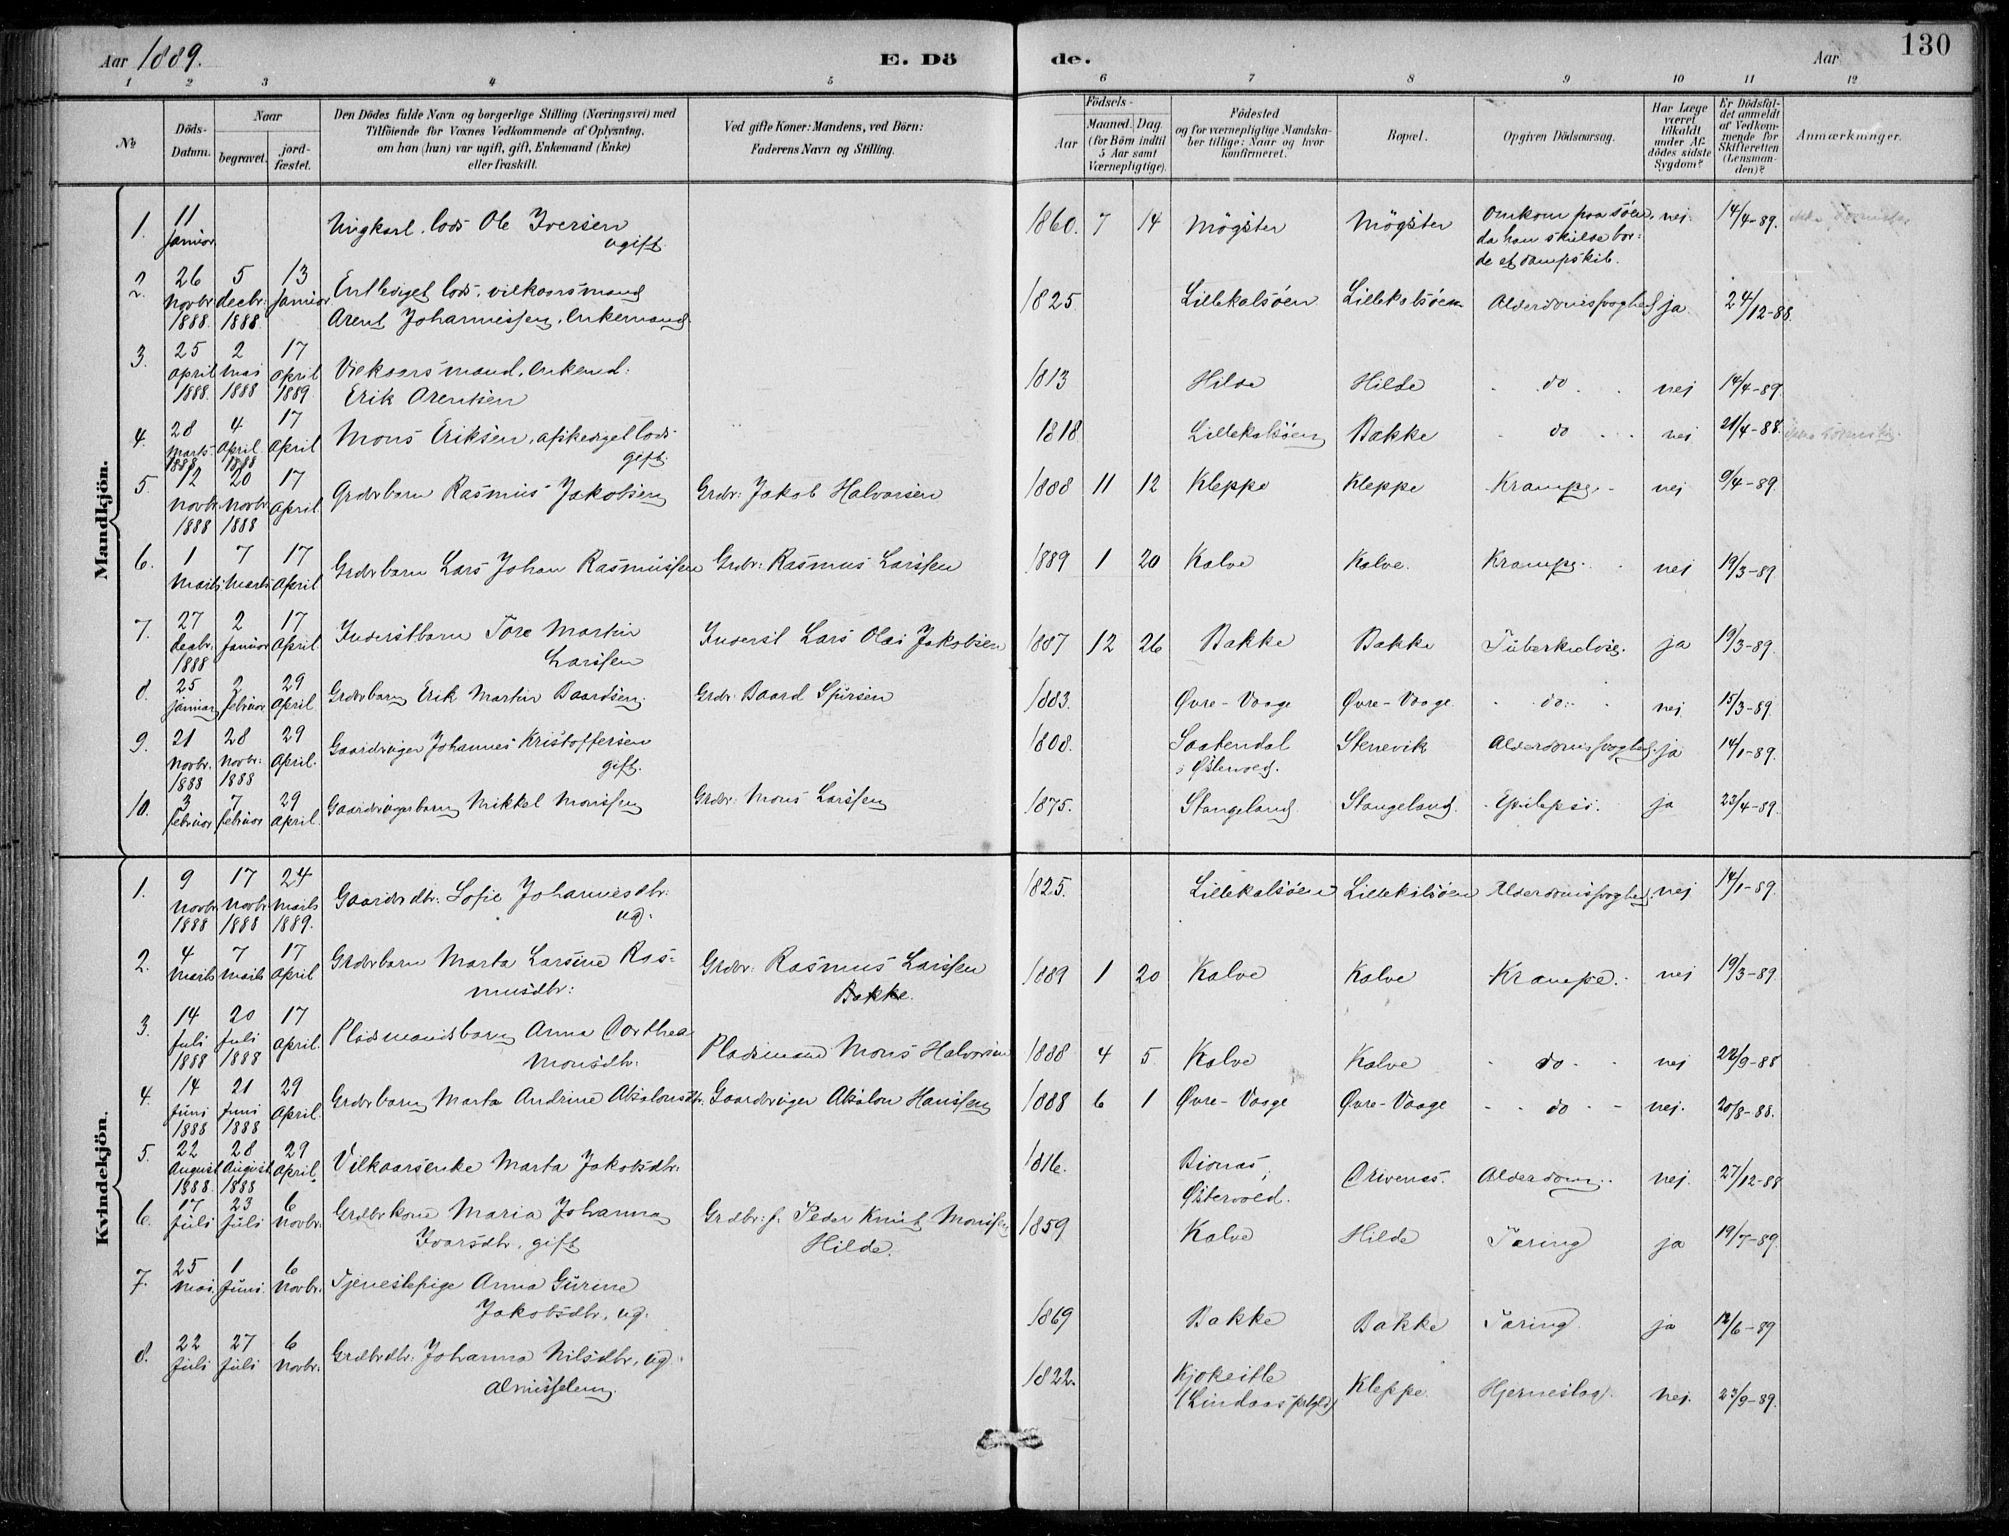 Aar 1889.
E. Dö
de.
Aar
130
1 2 3 4 5 6 7 8 9 10 11 12
No
Döds-
Datum.
Naar
begravet.
jord-
fæstet.
Den Dödes fulde Navn og borgerlige Stilling (Næringsvei) med
Tilföiende for Voxnes Vedkommende af Oplysning,
om han (hun) var ugift, gift, Enkemand (Enke)
eller fraskilt.
Ved gifte Koner: Mandens, ved Börn:
Faderens Navn og Stilling.
Födsels-
Aar
Maaned. Dag
(for Börn indtil
5 Aar samt
Værnepligtige).
Födested
og for værnepligtige Mandska-
ber tillige: Naar og hvor
konfirmeret.
Bopæl.
Opgiven Dödsaarsag.
Har Læge
været
tilkaldt
under Af-
dödes sidste
Sygdom?
Er Dödsfal-
det anmeldt
af Vedkom-
mende for
Skifteretten
(Lensman-
den)?
Anmærkninger.
Mandkjön.
1. 11 Januar Ungkarl. Lods Ole Iversen ugift. 1860. 7 14 Mögster Mögster Omkom paa söen, da han skulde bor- de et dampskib. nej. 14/4-89.
2. 26 Novbr 1888. 5 decbr: 1888 13 Januar Entlediget lods, vilkaarsmand Arent Johannessen, Enkemand. 1825. Lillekalsöen Lillekalsöen Alderdomssvaghed ja 24/12-88.
3. 25 april 1888. 2 Mai 1888 17 april 1889 Vilkaarsmand, enkemd: Erik Arentsen 1813 Hilde Hilde do nej 14/4-89.
4. 28 Marts 1888 4 April 1888 17 April Mons Eriksen, afskediget lods gift. 1818. Lillekalsöen Bakke do nej 21/4-88.
5. 12 Novbr 1888 20 Novbr 1888 17 April Grdbrbarn Rasmus Jakobsen Grdbr: Jakob Halvorsen 1888 11 12 Kleppe Kleppe Krampe nej 9/4-89
6. 1 Marts 7 Marts 17 April Grdbrbarn Lars Johan Rasmussen Grdbr: Rasmus Larssen 1889 1 20 Kalve Kalve. Krampe. nej 19/3-89
7. 27 decbr. 1888 2 Januar 17 April Inderstbarn Tore Martin Larssen Inderst Lars Olai Jakobsen 1887 12 26 Bakke Bakke Tuberkulose. ja 19/3-89.
8. 25 januar 2 februar 29 April Grdbrbarn Erik Martin Baardsen. Grdbr: Baard Sjursen 1883. Øvre-Vaage Øvre-Vaage do nej. 15/3-89.
9. 21 Novbr. 1888 28 Novbr: 1888 29 April. Gaardbruger Johannes Kristoffersen gift. 1808. Saatendal i Østervold. Stenevik Alderdomssvaghed. ja 14/1-89.
10. 3 februar 7 februar 29 April. Gaardbrugerbarn Mikkel Monssen Grdbr: Mons Larssen 1875. Stangeland. Stangeland. Epilepsi. ja 23/4-89.
Kvindekjön.
1. 9 Novbr 1888 17 Novbr 1888 24 Marts 1889. Gaardbrdtr: Sofie Johannesdtr: ug: 1825. Lillekalsöen Lillekalsöen Alderdomssvaghed. nej 14/1-89.
2. 4 Marts 7 Marts 17 April Grdbrbarn Marta Larsine Ras- musdtr: Grdbr: Rasmus Larssen Bakke. 1889 1 20 Kalve Kalve Krampe. nej 19/3-89.
3. 14 Juli 1888 20 Juli 1888 17 April. Pladsmandsbarn Anna Dorthea Monsdtr: Pladsmand Mons Halvorsen 1888 4 5. Kalve Kalve do nej 22/9-88
4. 14 Juni 1888 21 Juni 1888 29 April Grdbrbarn Marta Andrine Absalonsdtr: Gaardbruger Absalon Hanssen 1888 6 1 Øvre-Vaage Øvre-Vaage do nej. 20/8-88.
5. 22 August 1888. 28 August 1888 29 April Vilkaarsenke Marta Jakobsdtr: 1816. Bionas, Østervold. Drivenes. Alderdom. nej. 27/12-88
6. 17 Juli 23 Juli 6 Novbr. Grdbrkone Maria Johanna Ivarsdtr, gift Grdbr: f. Peder Knut Monssen Hilde. 1859 Kalve Hilde Tæring ja 19/7-89.
7. 25 Mai 1 Juni. 6 Novbr. Tjenestepige Anna Gurine Jakobsdtr, ug: 1869 Bakke Bakke Tæring ja 12/6-89
8. 22 Juli 27 Juli 6 Novbr. Grdbrdtr: Johanna Nilsdtr, ug. almisselem. 1822. Kjokeitle (Lindaas prgld) Kleppe. Hjerneslag. nej. 23/9-89.